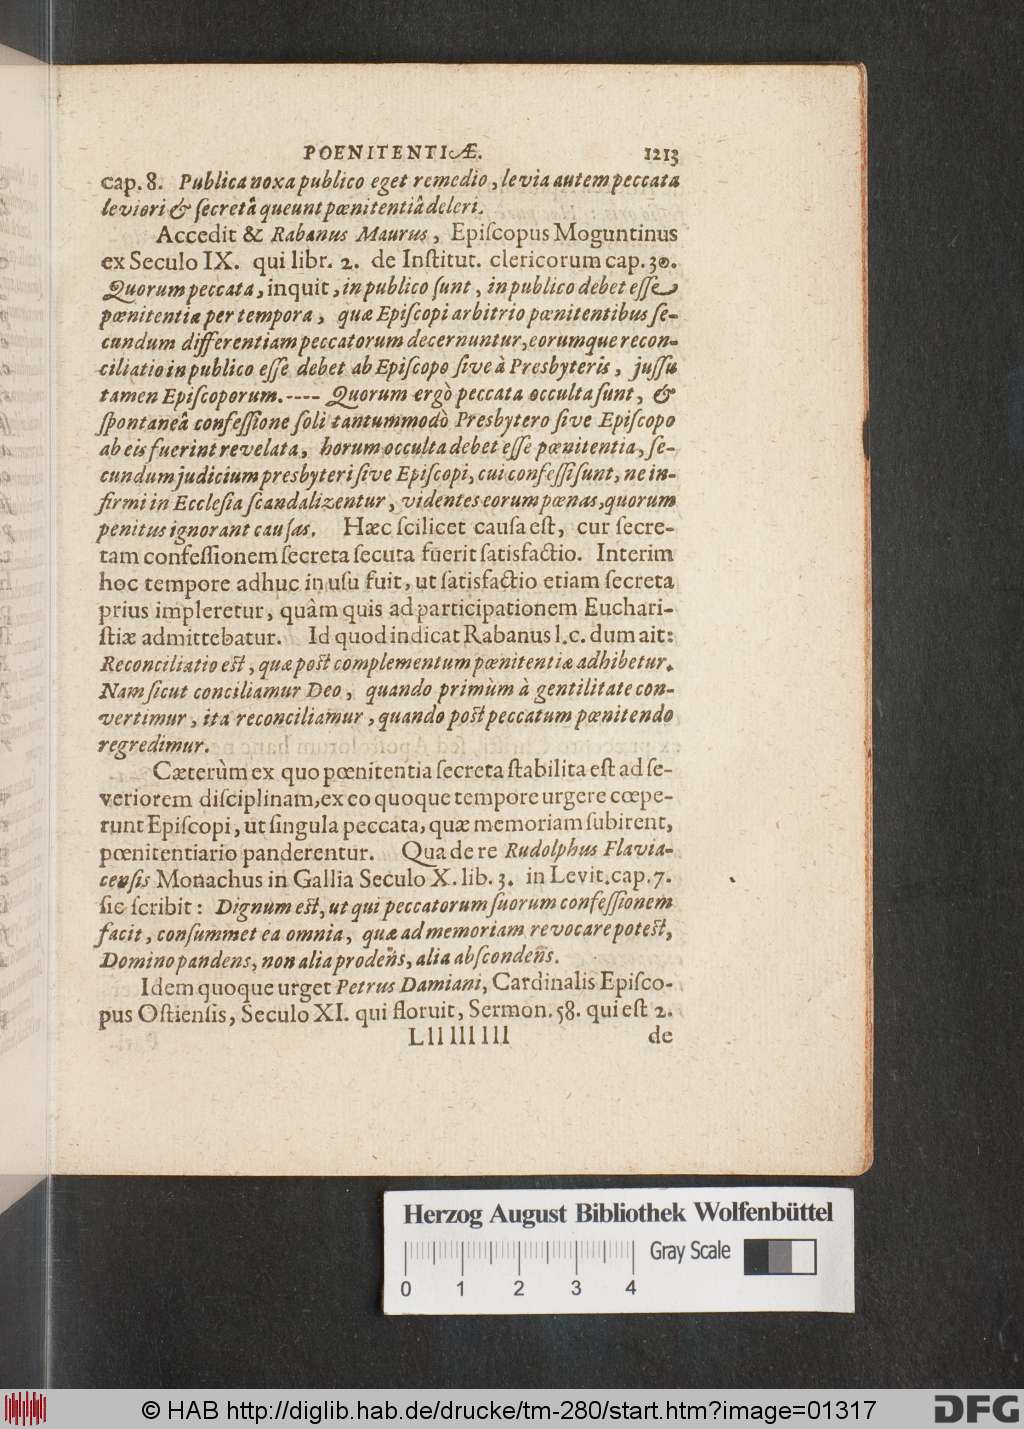 POENITENTIÆ. 1213
cap. 8. Publica noxa publico eget remedio, levia autem peccata
leviori & ſecretâ queunt pœnitentiâ deleri.
Accedit & Rabanus Maurus, Epiſcopus Moguntinus
ex Seculo IX. qui libr. 2. de Inſtitut. clericorum cap. 30.
Quorum peccata, inquit, in publico ſunt, in publico debet eſſe
pœnitentia per tempora, quæ Epiſcopi arbitrio pœnitentibus ſe-
cundum differentiam peccatorum decernuntur, eorumque recon-
ciliatio in publico eſſe debet ab Epiſcopo ſive à Presbyteris, juſſu
tamen Epiſcoporum. ---- Quorum ergò peccata occulta ſunt, &
ſpontaneâ confeſſione ſoli tantummodò Presbytero ſive Epiſcopo
ab eis fuerint revelata, horum occulta debet eſſe pœnitentia, ſe-
cundum judicium presbyteri ſive Epiſcopi, cui confeſſi ſunt, ne in-
firmi in Eccleſia ſcandalizentur, videntes eorum pœnas, quorum
penitus ignorant cauſas. Hæc ſcilicet cauſa eſt, cur ſecre-
tam confeſſionem ſecreta ſecuta fuerit ſatisfactio. Interim
hoc tempore adhuc in uſu fuit, ut ſatisfactio etiam ſecreta
prius impleretur, quàm quis ad participationem Euchari-
ſtiæ admittebatur. Id quod indicat Rabanus l. c. dum ait:
Reconciliatio eſt, quæ poſt complementum pœnitentiæ adhibetur.
Nam ſicut conciliamur Deo, quando primùm à gentilitate con-
vertimur, ita reconciliamur, quando poſt peccatum pœnitendo
regredimur.
Cæterùm ex quo pœnitentia ſecreta ſtabilita eſt ad ſe-
veriorem diſciplinam, ex eo quoque tempore urgere cœpe-
runt Epiſcopi, ut ſingula peccata, quæ memoriam ſubirent,
pœnitentiario panderentur. Qua de re Rudolphus Flavia-
cenſis Monachus in Gallia Seculo X. lib. 3. in Levit. cap. 7.
ſic ſcribit: Dignum eſt, ut qui peccatorum ſuorum confeſſionem
facit, conſummet ea omnia, quæ ad memoriam revocare poteſt,
Domino pandens, non alia prodens, alia abſcondens.
Idem quoque urget Petrus Damiani, Cardinalis Epiſco-
pus Oſtienſis, Seculo XI. qui floruit, Sermon. 58. qui eſt 2.
Lll lll lll de
Herzog August Bibliothek Wolfenbüttel
Gray Scale
0 1 2 3 4
© HAB http://diglib.hab.de/drucke/tm-280/start.htm?image=01317
DFG